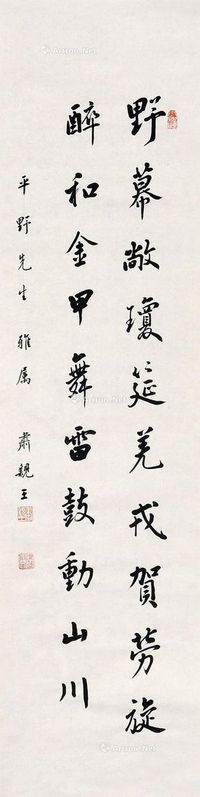 野幕敞瓊筵羌戎賀勞旋
醉和金甲舞雷鼓動山川
平野先生雅属
肅親王